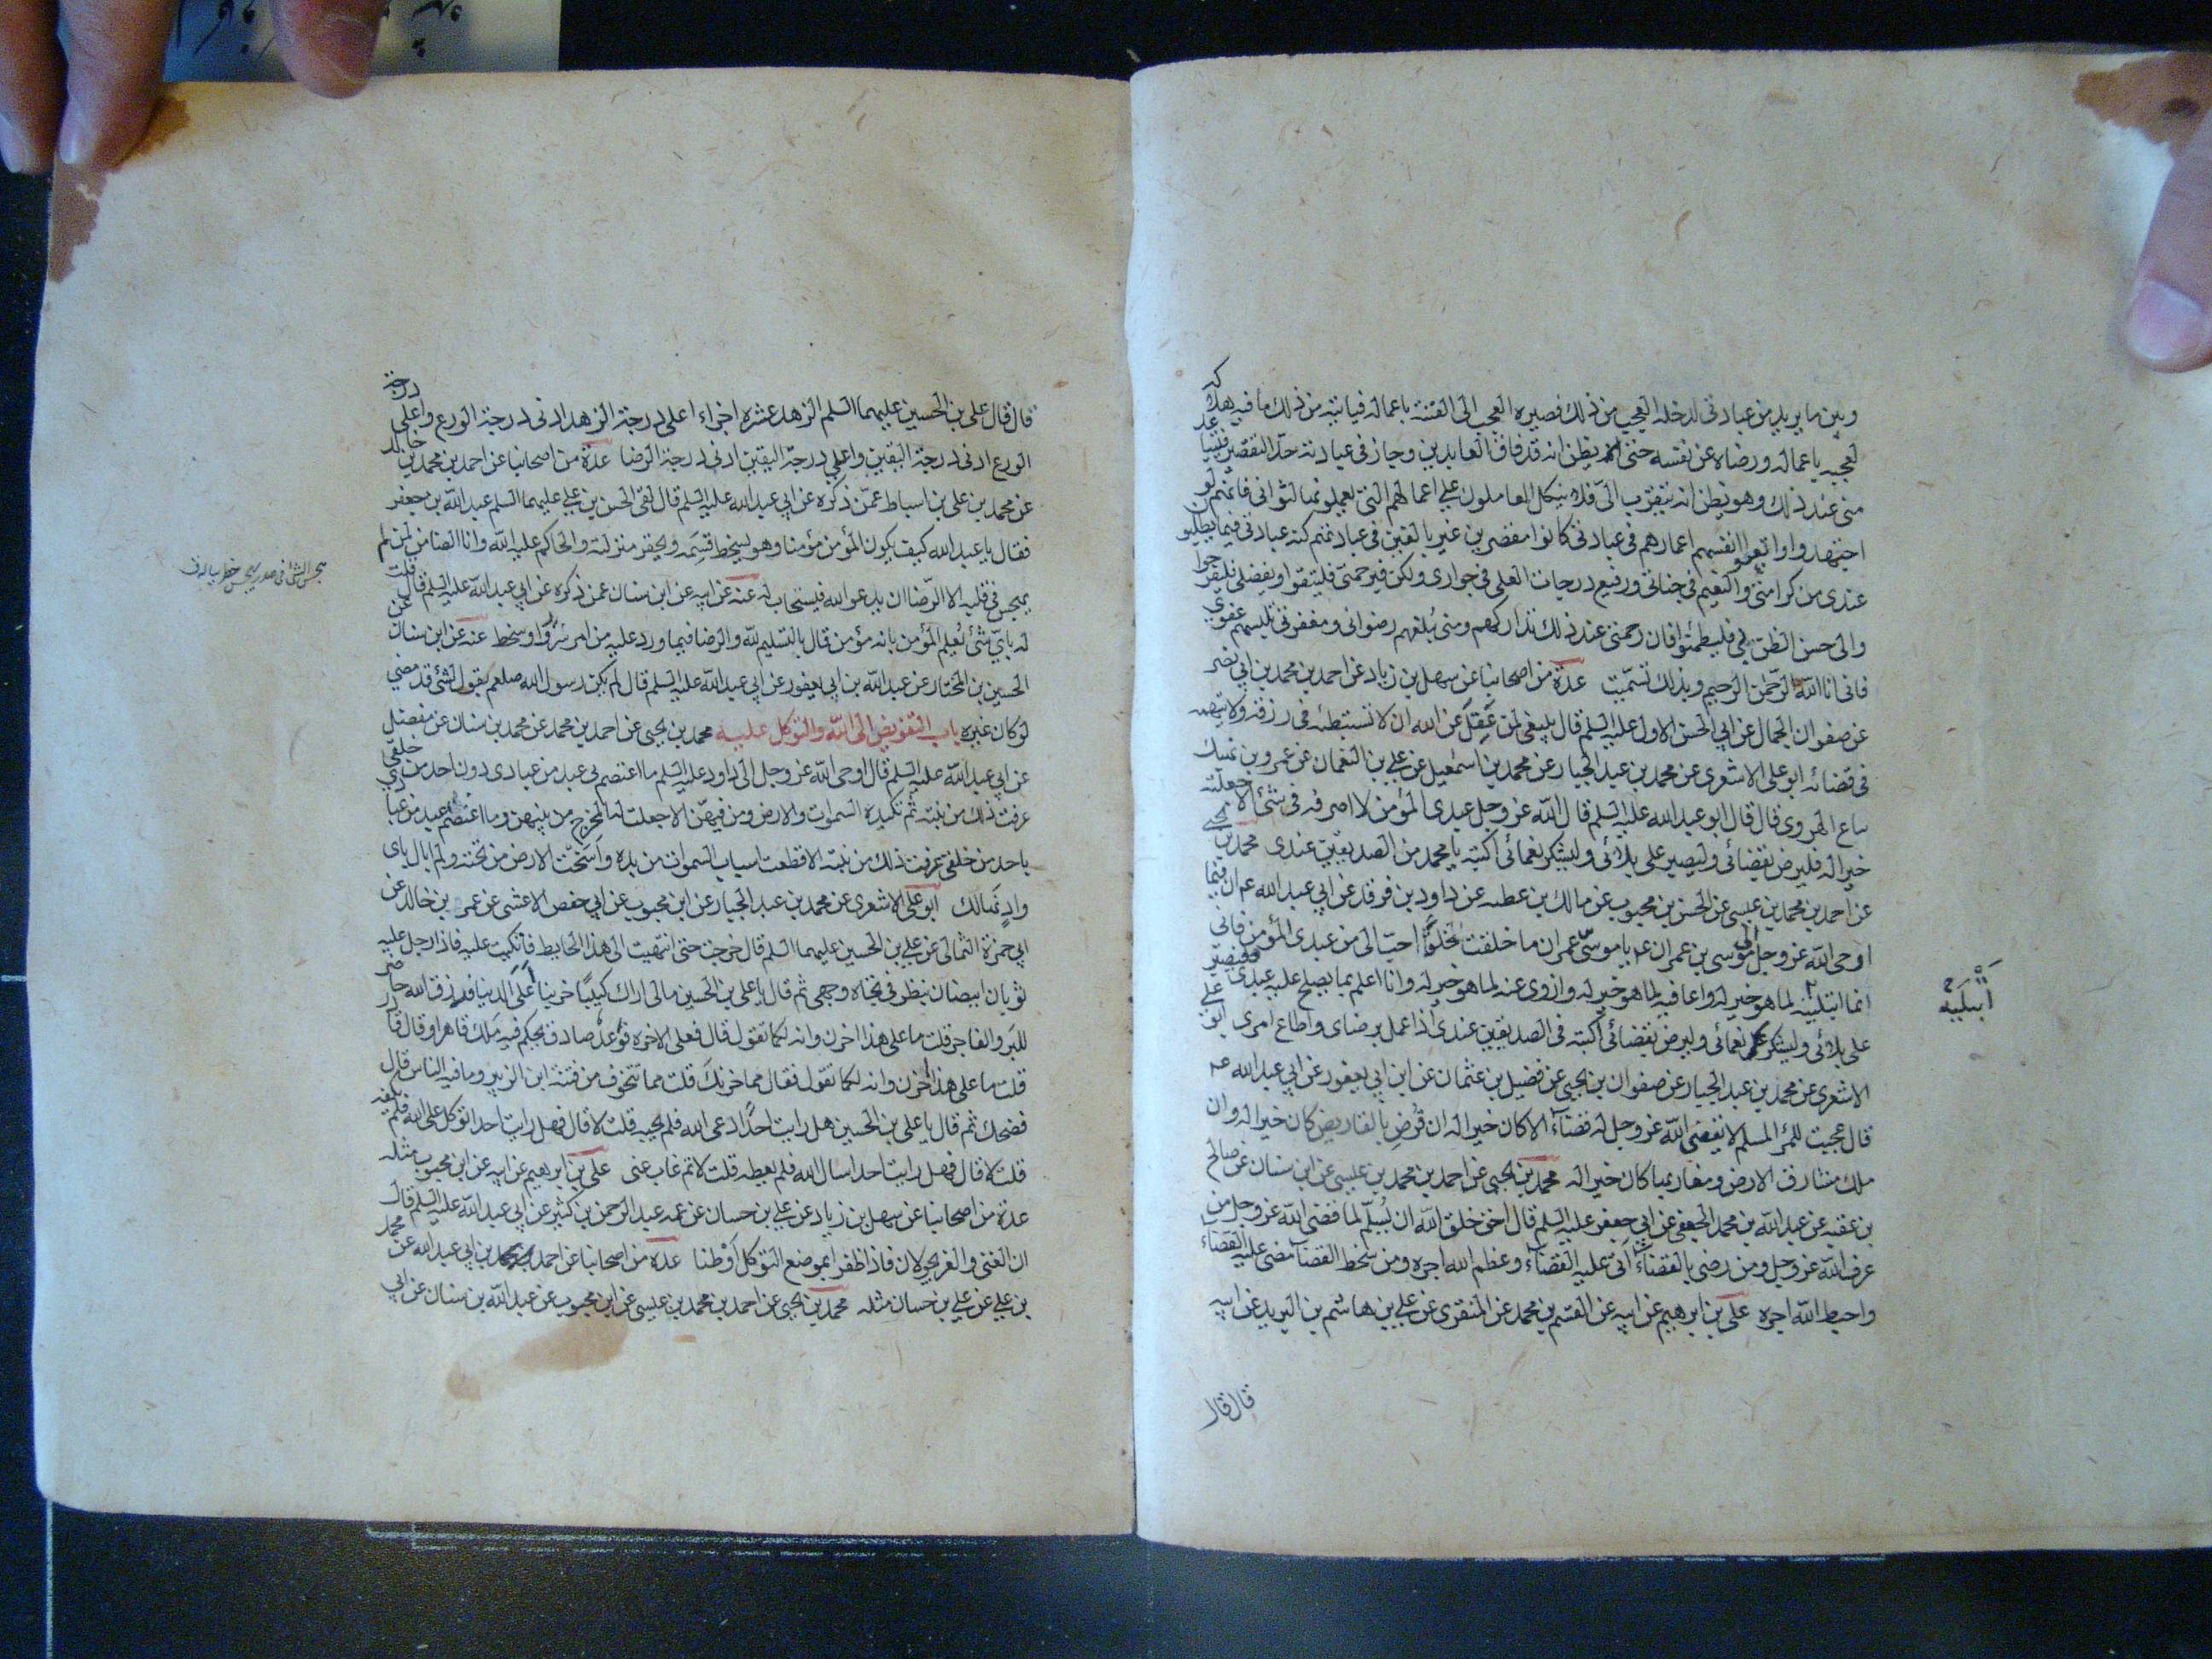 وبين ما يريد من عبادتى لدخله العجب من ذلك فصيره العجب الى الفتنة باعماله فياتيه من ذلك ما فيه هلاكه
لعجبه باعماله ورضاه عن نفسه حتى يظن انه قد فاق العابدين وجاز فى عبادته حد التقصير فيتباعد
منى عند ذلك وهو يظن انه يتقرب الى فلا يتكل العاملون على اعمالهم التى يعملونها لثوابى فانهم لو
اجتهدوا واتعبوا انفسهم اعمارهم فى عبادتى كانوا مقصرين غير بالغين فى عبادتهم كنه عبادتى فيما يطلبون
عندى من كرامتى والنعيم فى جناتى ورفيع درجات العلى فى جوارى ولكن فبرحمتى فليثقوا وبفضلى فليفرحوا
والى حسن الظن بى فليطمئنوا فان رحمتى عند ذلك تداركهم ومنى يبلغهم رضوانى ومغفرتى تلبسهم عفوى
فانى انا الله الرحمن الرحيم وبذلك تسميت عدة من اصحابنا عن سهل بن زياد عن احمد بن محمد بن ابى نصر
عن صفوان الجمال عن ابى الحسن الاول عليه السلم قال ينبغى لمن عقل عن الله ان لا تستبطئه فى رزقه ولا يتهمه
فى قضائه ابو على الاشعرى عن محمد بن عبد الجبار عن محمد بن اسمعيل عن على بن النعمان عن عمرو بن نهيك
بياع الهروى قال قال ابو عبد الله عليه السلم قال الله عز وجل عبدى المؤمن لا اصرفه فى شئ الا جعلته
خيرا له فليرض بقضائى وليصبر على بلائى وليشكر نعمائى اكتبه يا محمد من الصديقين عندى محمد بن يحيى
عن احمد بن محمد بن عيسى عن الحسن بن محبوب عن مالك بن عطيه عن داود بن فرقد عن ابى عبد الله عم ان فيما
اوحى الله عز وجل الى موسى بن عمران عم يا موسى بن عمران ما خلقت خلقا احب الى من عبدى المؤمن فانى
انما ابتليته لما هو خير له واعافيه لما هو خير له وازوى عنه لما هو خير له وانا اعلم بما يصلح عليه عبدى فليصبر
على بلائى وليشكر نعمائى وليرض بقضائى اكتبه فى الصديقين عندى اذا عمل برضاى واطاع امرى ابو على
الاشعرى عن محمد بن عبد الجبار عن صفوان بن يحيى عن فضيل بن عثمان عن ابن ابى يعفور عن ابى عبد الله عم
قال عجبت للمرء المسلم لا يقضى الله عز وجل له قضاء الا كان خيرا له ان قرض بالمقاريض كان خيرا له وان
ملك مشارق الارض ومغاربها كان خيرا له محمد بن يحيى عن احمد بن محمد بن عيسى عن ابن سنان عن صالح
بن عقبه عن عبد الله بن محمد الجعفى عن ابى جعفر عليه السلم قال احق خلق الله ان يسلم لما قضى الله عز وجل من
عرف الله عز وجل ومن رضى بالقضاء اتى عليه القضاء وعظم الله اجره ومن سخط القضاء مضى عليه القضاء
واحبط الله اجره على بن ابرهيم عن ابيه عن القسم بن محمد عن المنقرى عن على بن هاشم بن البريد عن ابيه
قال قال
ابتليه
قال قال على بن الحسين عليهما السلم الزهد عشره اجزاء اعلى درجة الزهد ادنى درجة الورع واعلى درجة
الورع ادنى درجة اليقين واعلى درجة اليقين ادنى درجة الرضا عدة من اصحابنا عن احمد بن محمد بن خالد
عن محمد بن على بن اسباط عمن ذكره عن ابى عبد الله عليه السلم قال لقى الحسن بن على عليهما السلم عبد الله بن جعفر
فقال يا عبد الله كيف يكون المؤمن مؤمنا وهو يسخط قسمه ويحقر منزلته والحاكم عليه الله وانا الضامن لمن لم
يهجس فى قلبه الا الرضا ان يدعو الله فيستجاب له عنه عن ابيه عن ابن سنان عمن ذكره عن ابى عبد الله عليه السلم قال قلت
له باى شئ يعلم المؤمن بانه مؤمن قال بالتسليم لله والرضا فيما ورد عليه من سرور او سخط عنه عن ابن سنان عن
الحسين بن المختار عن عبد الله بن ابى يعفور عن ابى عبد الله عليه السلم قال لم يكن رسول الله صلعم يقول لشئ قد مضى
لو كان غيره باب التفويض الى الله والتوكل عليه محمد بن يحيى عن احمد بن محمد عن محمد بن سنان عن مفضل
عن ابى عبد الله عليه السلم قال اوحى الله عز وجل الى داود عليه السلم ما اعتصم بى عبد من عبادى دون احد من خلقى
عرفت ذلك من نيته ثم تكيده السموات والارض ومن فيهن الا جعلت له المخرج من بينهن وما اعتصم عبد من عبادى
باحد من خلقى عرفت ذلك من نيته الا قطعت اسباب السموات من يده واسخت الارض من تحته ولم ابال باى
واد تهالك ابو على الاشعرى عن محمد بن عبد الجبار عن ابن محبوب عن ابى حفص الاعشى عن عمر بن خالد عن
ابى حمزة الثمالى عن على بن الحسين عليهما السلم قال خرجت حتى انتهيت الى هذا الحايط فاتكيت عليه فاذا رجل عليه
ثوبان ابيضان ينظر فى تجاه وجهى ثم قال يا على بن الحسين مالى اراك كئيبا حزينا اعلى الدنيا فرزق الله حاضر
للبر والفاجر قلت ما على هذا احزن وانه لكما تقول قال فعلى الاخره فوعد صادق يحكم فيه ملك قاهر او قال قادر
قلت ما على هذا احزن وانه لكما تقول فقال مما حزنك قلت مما تتخوف من فتنة ابن الزبير وما فيه الناس قال
فضحك ثم قال يا على بن الحسين هل رايت احدا دعى الله فلم يجبه قلت لا قال فهل رايت احدا توكل على الله فلم يكفه
قلت لا قال فهل رايت احدا سال الله فلم يعطه قلت لا ثم غاب عنى على بن ابرهيم عن ابيه عن ابن محبوب مثله
عدة من اصحابنا عن سهل بن زياد عن على بن حسان عن عمه عبد الرحمن بن كثير عن ابى عبد الله عليه السلم قال
ان الغنى والعز يجولان فاذا ظفرا بموضع التوكل اوطنا عده من اصحابنا عن احمد بن ابى عبد الله عن محمد
بن على عن على بن حسان مثله محمد بن يحيى عن احمد بن محمد بن عيسى عن ابن محبوب عن عبد الله بن سنان عن ابى